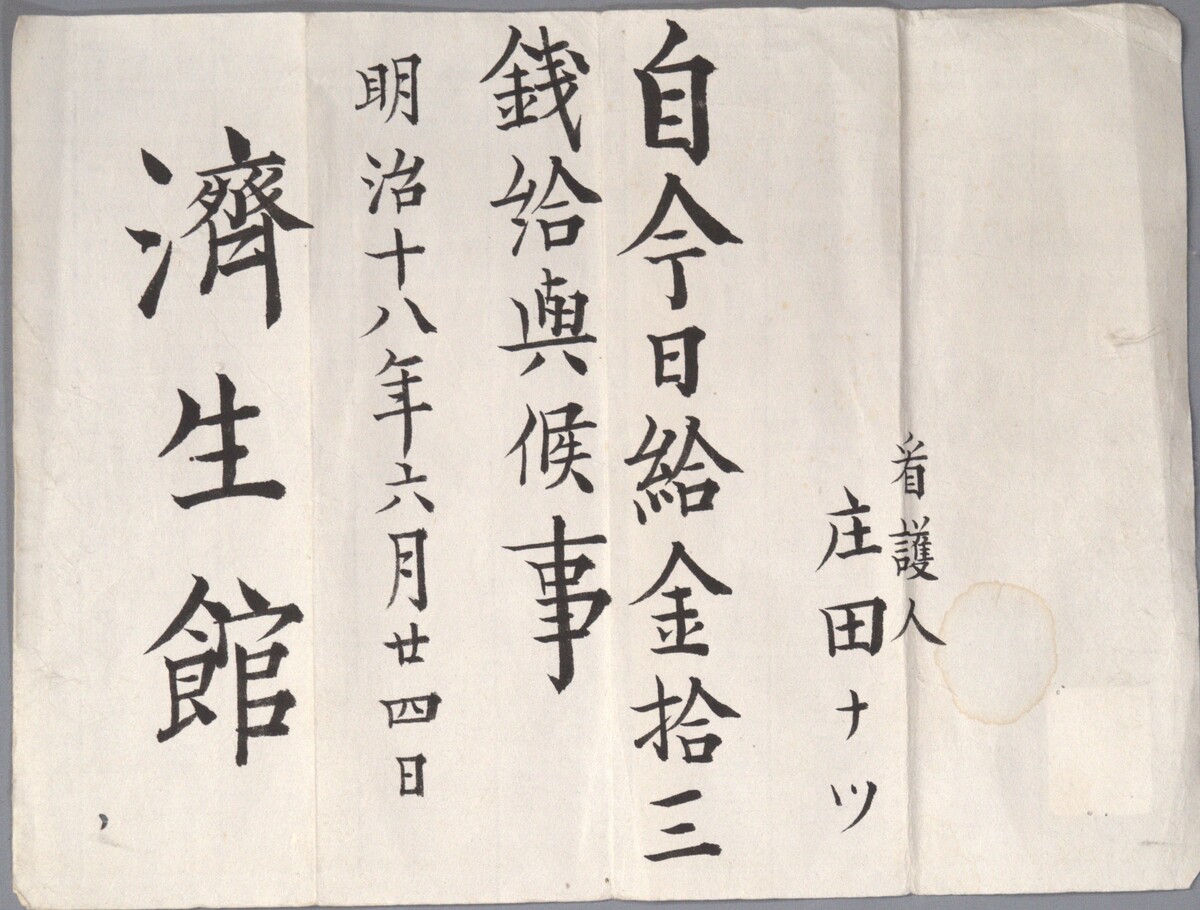 看護人
庄田ナツ
自今日給金拾三
銭給與候事
明治十八年六月廿四日
濟生館